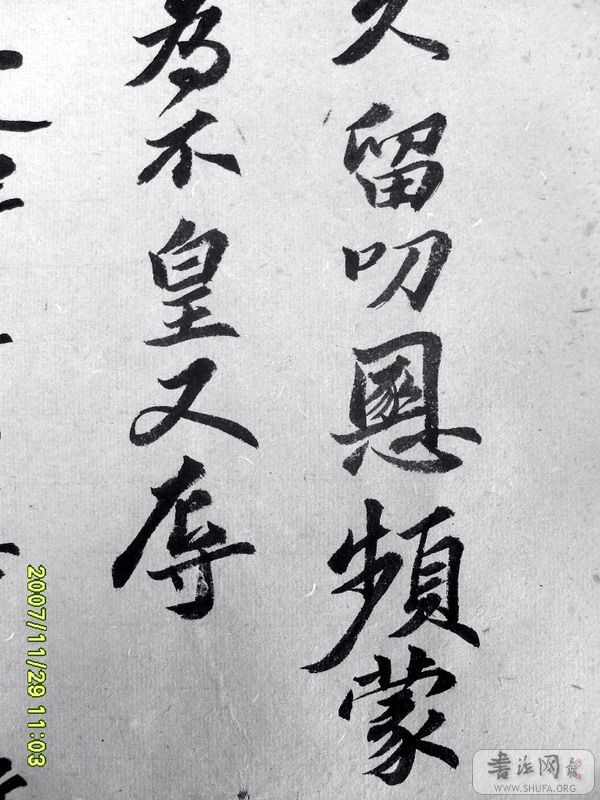 久留叨恩頻蒙
為不皇又辱
2007/11/29 11:03
书法网
WWW.SHUFA.ORG